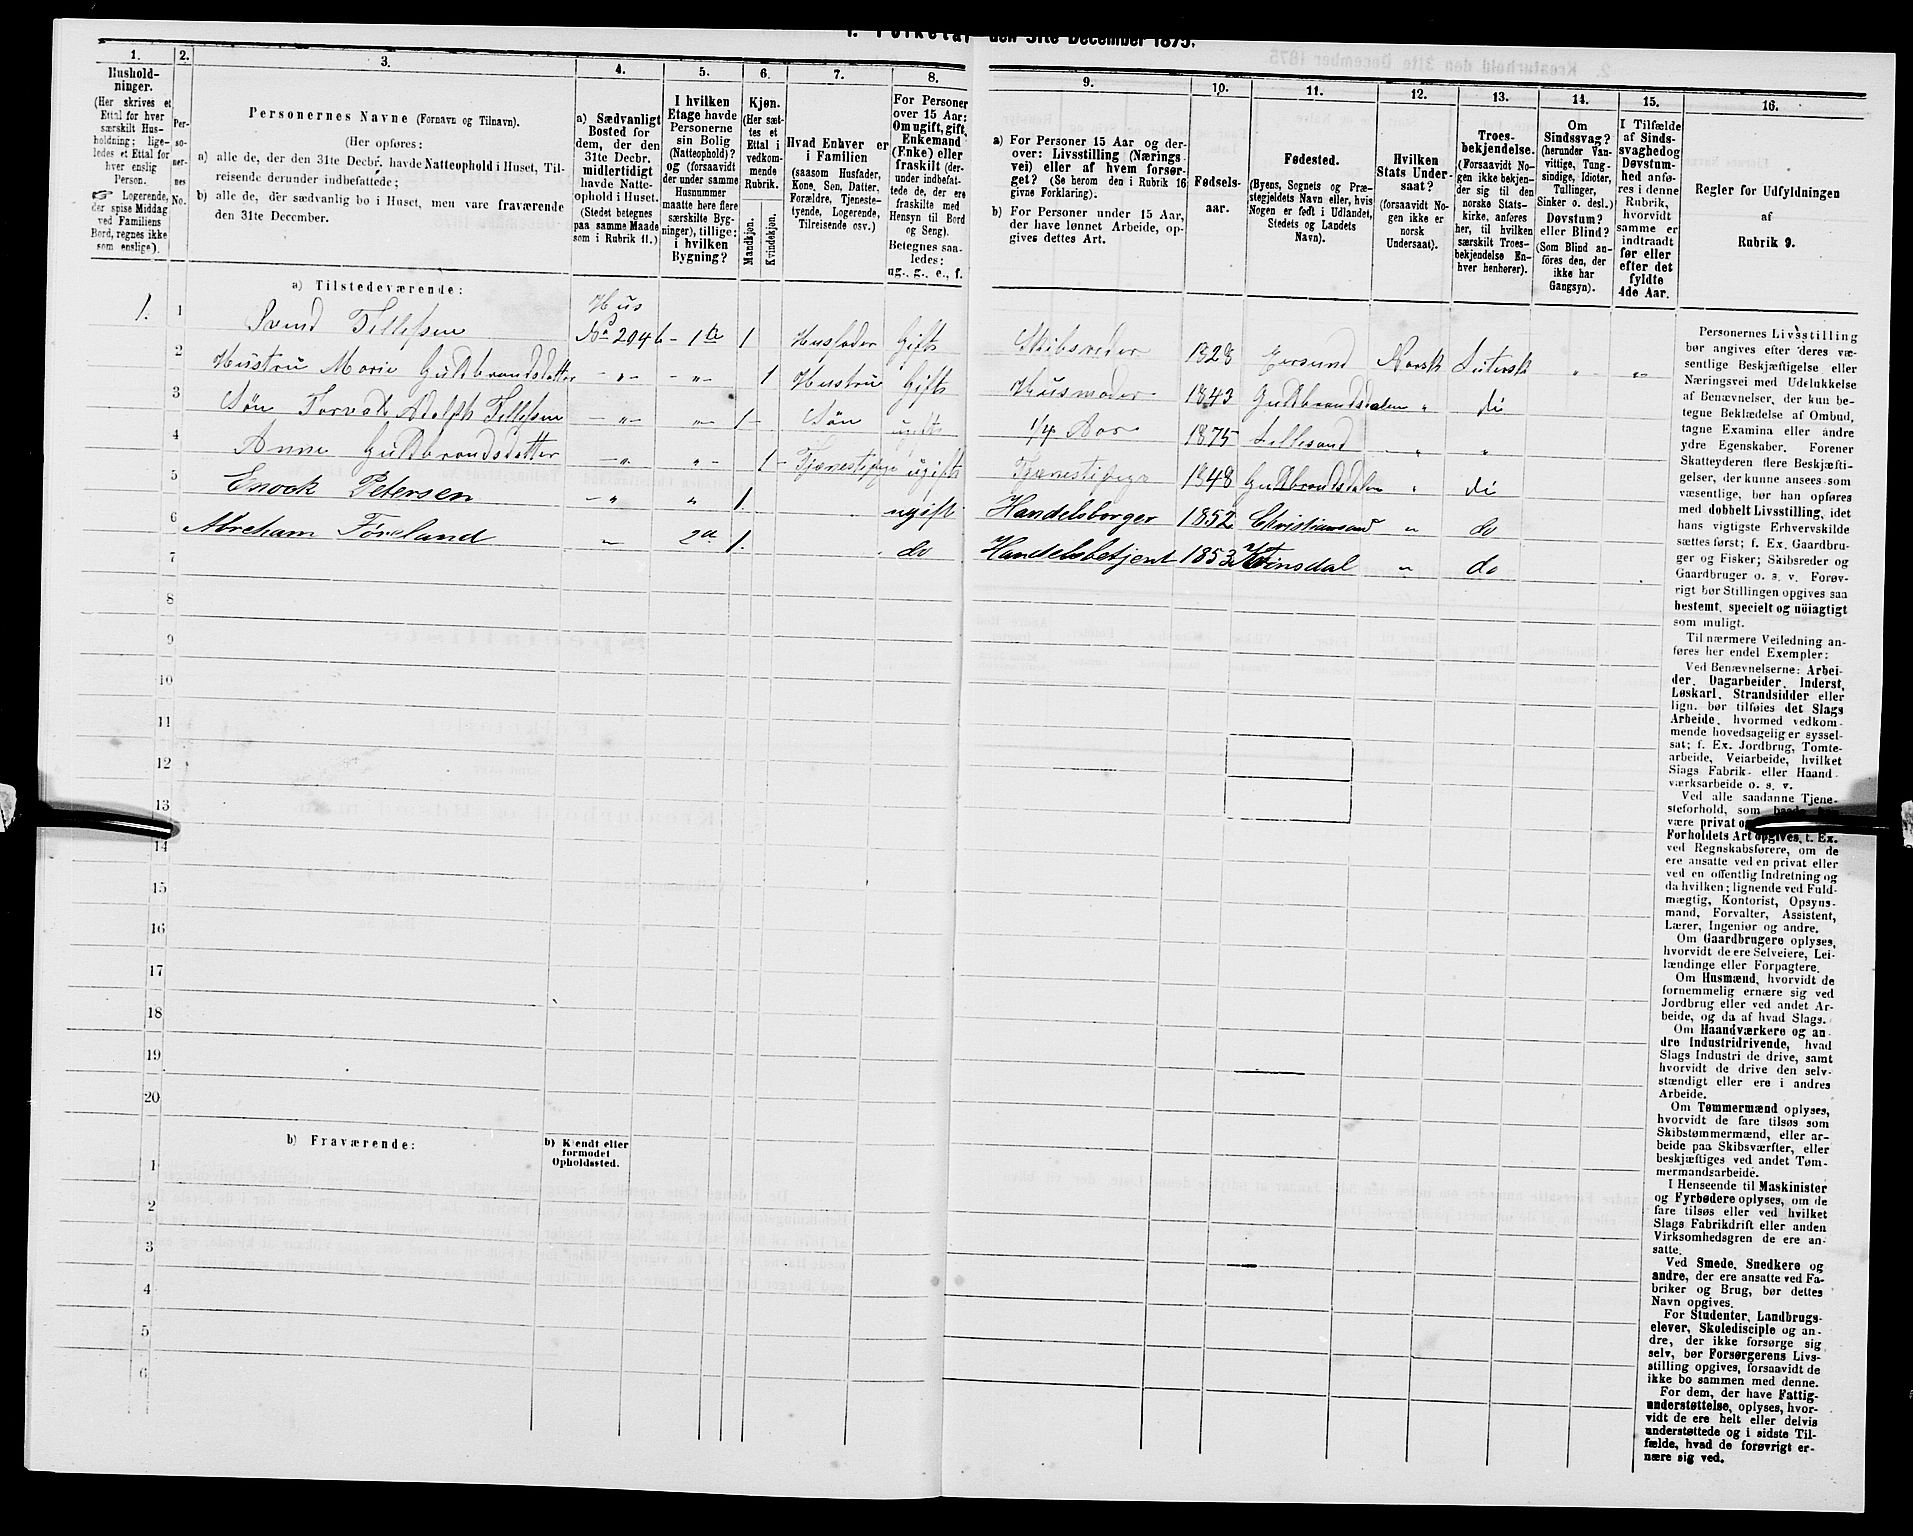 1. Folketal den 31te December 1875.
1. 2. 3. 4. 5. 6. 7. 8. 9. 10. 11. 12. 13. 14. 15. 16.
Hushold-
ninger.
(Her skrives et
Ettal for hver
særskilt Hus-
holdning; lige-
ledes et Ettal for
hver enslig
Person.
☞ Logerende,
der spise Middag
ved Familiens
Bord, regnes ikke
som enslige).
Per-
so-
ner-
nes
No.
Personernes Navne (Fornavn og Tilnavn).
(Her opføres:
a) alle de, der den 31te Decbr. havde Natteophold i Huset, Til-
reisende derunder indbefattede;
b) alle de, der sædvanlig bo i Huset, men vare fraværende
den 31te December.
a) Sædvanligt
Bosted for
dem, der den
31te Decbr.
midlertidigt
havde Natte-
ophold i Huset.
(Stedet betegnes
paa samme Maade
som i Rubrik 11.)
I hvilken
Etage havde
Personerne
sin Bolig
(Natteophold)?
og (forsaavidt
der under samme
Husnummer
maatte here flere
særskilte Byg-
ninger), tillige:
i hvilken
Bygning?
Kjøn.
(Her sæt-
tes et
Ettal i
vedkom-
mende
Rubrik.
Mandkjøn.
Kvindekjøn.
Hvad Enhver er
i Familien
(saasom Husfader,
Kone, Søn, Datter,
Forældre, Tjeneste-
tyende, Logerende,
Tilreisende osv.)
For Personer
over 15 Aar:
Om ugift, gift,
Enkemand
(Enke) eller
fraskilt (der-
under indbefat-
tede de, der ere
fraskilte med
Hensyn til Bord
og Seng).
Betegnes saa-
ledes:
ug., g., e., f.
a) For Personer 15 Aar og der-
over: Livsstilling (Nærings-
vei) eller af hvem forsør-
get? (Se herom den i Rubrik 16
givne Forklaring).
b) For Personer under 15 Aar,
der have lønnet Arbeide, op-
gives dettes Art.
Fødsels-
aar.
Fødested.
(Byens, Sognets og Præ-
stegjeldets Navn eller, hvis
Nogen er født i Udlandet,
Stedets og Landets
Navn).
Hvilken
Stats Under-
saat?
(forsaavidt No-
gen ikke er
norsk
Undersaat).
Troes-
bekjendelse.
(Forsaavidt No-
gen ikke bekjen-
der sig til den
norske Stats-
kirke, anføres
her, til hvilken
særskilt Troes-
bekjendelse En-
hver henhører).
Om
Sindssvag?
(herunder Van-
vittige, Tung-
sindige, Idioter,
Tullinger,
Sinker o. desl.)
Døvstum?
eller Blind?
(Som Blind an-
føres den, der
ikke har
Gangsyn).
I Tilfælde
af Sinds-
svaghed og
Døvstum-
hed anfø-
res i denne
Rubrik,
hvorvidt
samme er
indtraadt
før eller
efter det
fyldte
4de Aar.
Regler for Udfyldningen
af
Rubrik 9.
a) Tilstedeværende:
Hus
1. 1 Svend Tellefsen No 294 b - 1te 1 Husfader Gift Skibsreder 1828 Egersund Norsk Lutersk " "
2 Hustru Marie Guldbrandsdatter - " - - " - 1 Hustru Gift Husmoder 1843 Guldbrandsdalen " di
3 Søn Torvald Adolph Tellefsen - " - " - 1 - Søn ugift 1/4 Aar 1875 Lillesand " "
4 Anne Guldbrandsdatter - " - " - 1 - Tjenestepige ugift Tjenestepige 1848 Guldbrandsdalen " di
5 Enock Petersen - " " 1. ugift Handelsborger 1852 Christiansand " do
6 Abreham Føreland " 2d 1. do Handelsbetjent 1853 Kvinsdal " do
7
8
9
10
11
12
13
14
15
16
17
18
19
20
b) Fraværende:
b) Kjendt eller
formodet
Opholdssted.
1
2
3
4
5
6
Personernes Livsstilling
bør angives efter deres væ-
sentlige Beskjæftigelse eller
Næringsvei med Udelukkelse
af Benævnelser, der kun be-
tegne Beklædelse af Ombud,
tagne Examina eller andre
ydre Egenskaber. Forener
Skatteyderen flere Beskjæfti-
gelser, der kunne ansees som
væsentlige, bør han opføres
med dobbelt Livsstilling, idet
hans vigtigste Erhvervskilde
sættes først; f. Ex. Gaardbru-
ger og Fisker; Skibsreder og
Gaardbruger o. s. v. Forøv-
rigt bør Stillingen opgives saa
bestemt, specielt og nöiagtigt
som muligt.
Til nærmere Veiledning an-
føres her endel Exempler:
Ved Benævnelserne: Arbei-
der, Dagarbeider, Inderst,
Løskarl, Strandsidder eller
lign. bør tilføies det Slags
Arbeide, hvormed vedkom-
mende hovedsagelig er syssel-
sat; f. Ex. Jordbrug, Tomte-
arbeide, Veiarbeide, hvilket
Slags Fabrik- eller Haand-
værksarbeide o. s. v.
Ved alle saadanne Tjene-
steforhold, som baade
være privat og
Forholdets Art opgives, t. Ex.
ved Regnskabsførere, om de
ere ansatte ved en privat eller
ved en offentlig Indretning og
da hvilken; lignende ved Fuld-
mægtig, Kontorist, Opsyns-
mand, Forvalter, Assistent,
Lærer, Ingeniør og andre.
Om Gaardbrugere oplyses,
hvorvidt de ere Selveiere, Lei-
lændinge eller Forpagtere.
Om Husmænd, hvorvidt de
fornemmelig ernære sig ved
Jordbrug eller ved andet Ar-
beide, og da af hvad Slags.
Om Haandværkere og an-
dre Industridrivende, hvad
Slags Industri de drive, samt
hvorvidt de drive den selv-
stændigt eller ere i andres
Arbeide.
Om Tømmermænd oplyses,
hvorvidt de fare tilsøs som
Skibstømmermænd, eller ar-
beide paa Skibsværfter, eller
beskjæftiges ved andet Tøm-
mermandsarbeide.
I Henseende til Maskinister
og Fyrbødere oplyses, om de
fare tilsøs eller ved hvilket
Slags Fabrikdrift eller anden
Virksomhedsgren de ere an-
satte.
Ved Smede, Snedkere og
andre, der ere ansatte ved Fa-
briker og Brug, bør dettes
Navn opgives.
For Studenter, Landbrugs-
elever, Skoledisciple og an-
dre, der ikke forsørge sig
selv, bør Forsørgerens Livs-
stilling opgives, forsaavidt de
ikke bo sammen med denne.
For dem, der have Fattig-
understøttelse, oplyses, hvor-
vidt de ere helt eller delvis
understøttede og i sidste Til-
fælde, hvad de forøvrigt er-
nære sig ved.